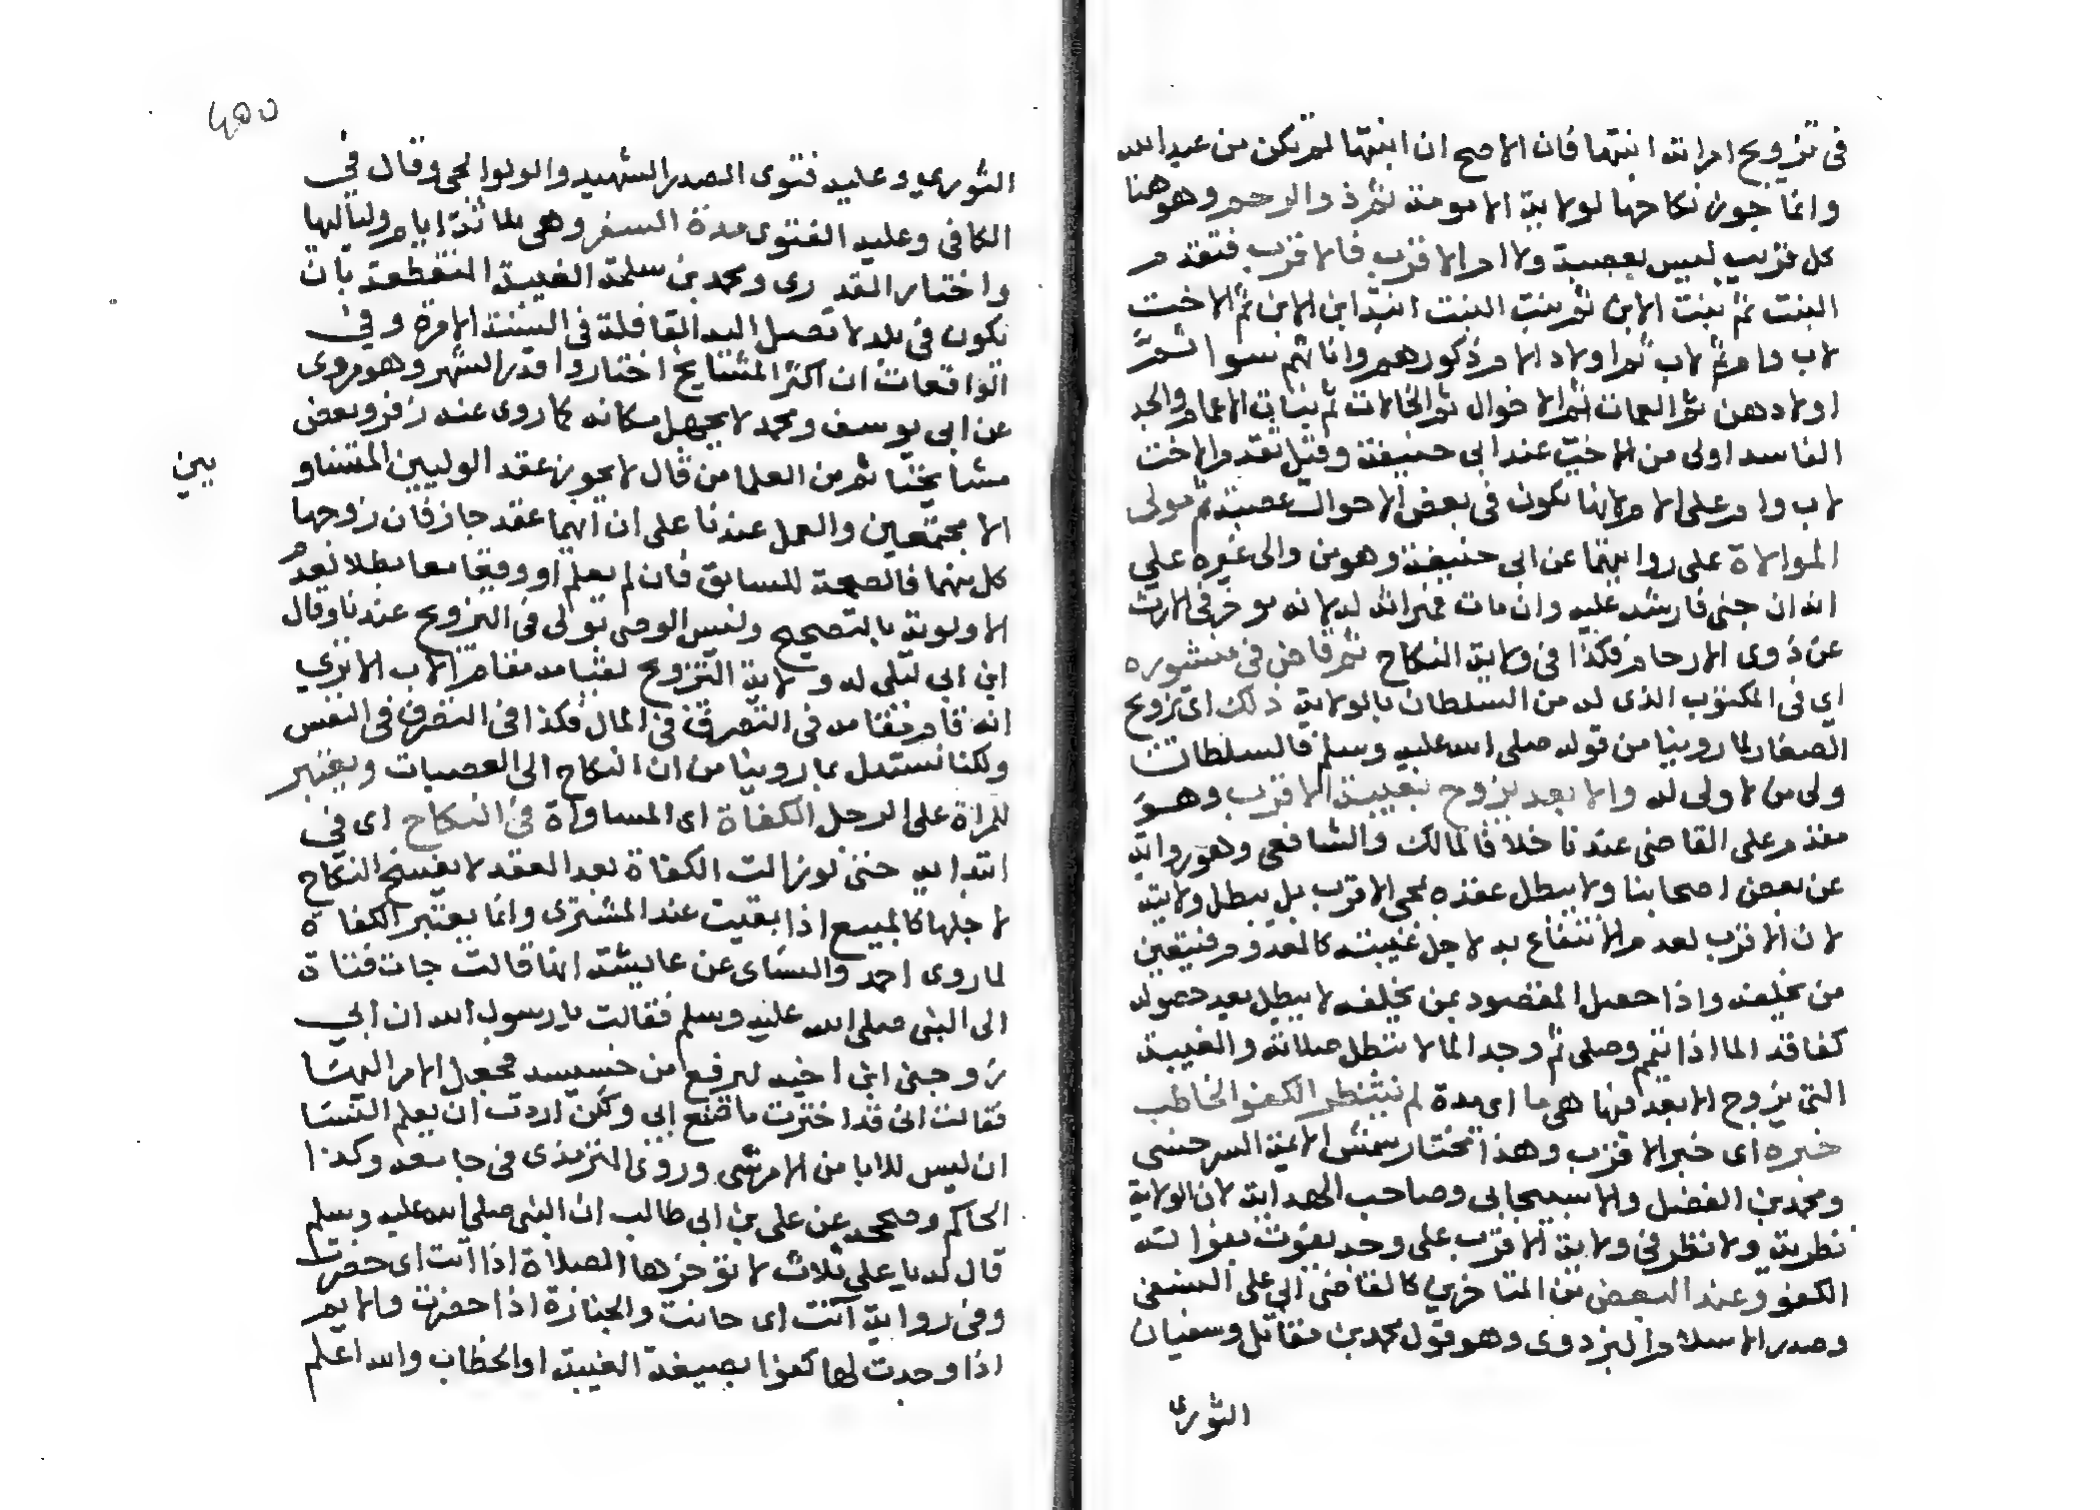 في تزويج امراته ابنتها فان الاصح ان ابنتها لم تكن من عبد الله
وانما جوز نكاحها لولاية الامومة ثم ذو الرحم وهو هنا
كل قريب ليس بعصبة ولا ام الاقرب فالاقرب فتقدم
البنت ثم بنت الابن ثم بنت البنت ابنة ابن الابن ثم الاخت
لاب وام ثم لاب ثم اولاد الام ذكورهم واناثهم سوا ثم
اولادهن ثم العمات ثم الاخوال ثم الخالات ثم بنات الاعمام والجد
الفاسد اولى من الاخت عند ابي حنيفة وقيل تقدم الاخت
لاب وام على الام لانها تكون في بعض الاحوال عصبة ثم مولى
الموالاة على روايتهما عن ابي حنيفة وهو من والى غيره علي
انه ان جنى فارشه عليه وان مات فميراثه له لانه موخر في الارث
عن ذوي الارحام فكذا في ولاية النكاح ثم قاض في منشوره
اي في المكتوب الذي له من السلطان بالولاية ذلك اي تزويج
الصغار لما روينا من قوله صلى الله عليه وسلم فالسلطان
ولي من لا ولي له والابعد يزوج بغيبة الاقرب وهو
مقدم على القاضي عندنا خلافا لمالك والشافعي وهو رواية
عن بعض اصحابنا ولا يبطل عقده بمجي الاقرب بل يبطل ولايته
لان الاقرب لعدم الانتفاع به لاجل غيبته كالمعدوم فيتعين
من يخلفه واذا حصل المقصود بمن يخلفه لا يبطل بعد حصوله
كفاقد الما اذا تيمم وصلى ثم وجد الما لا تبطل صلاته والغيبة
التي يزوج الابعد فيها هي ما اي مدة لم ينتظر الكفو الخاطب
خبره اي خبر الاقرب وهذا مختار شمس الايمة السرخسي
ومحمد بن الفضل والاسبيجابي وصاحب الهداية لان الولاية
نظرية ولا نظر في ولاية الاقرب على وجه يفوت بفواته
الكفو وعند البعض من المتاخرين كالقاضي ابي علي النسفي
وصدر الاسلام البزدوي وهو قول محمد بن مقاتل وسفيان
الثوري
٤٥٥
الثوري وعليه فتوى الصدر الشهيد والولوالجي وقال في
الكافي وعليه الفتوى مدة السفر وهي ثلاثة ايام ولياليها
واختار القدوري ومحمد بن سلمة الغيبة المنقطعة بان
تكون في بلد لا تصل اليه القافلة في السنة الامرة وفي
الواقعات ان اكثر المشايخ اختاروا قدر الشهر وهو مروي
عن ابي يوسف ومحمد لا يجهل مكانه كما روى عنه زفر وبعض
مشايخنا ثم من العلما من قال لا يجوز عقد الوليين المتساو
يين
الا مجتمعين والعمل عندنا على ان ايهما عقد جاز فان زوجها
كل منهما فالصحة للسابق فان لم يعلم او وقعا معا بطلا لعدم
الاولوية بالتصحيح وليس الوصي بولي في التزويج عندنا وقال
ابن ابي ليلى له ولاية التزويج لقيامه مقام الاب الا تري
انه قام مقامه في التصرف في المال فكذا في التصرف في النفس
ولكنا نستدل بما روينا من ان النكاح الى العصبات ويعتبر
للمراة على الرجل الكفاة اي المساواة في النكاح اي في
ابتدايه حتى لو زالت الكفاة بعد العقد لا يفسخ النكاح
لاجلها كالمبيع اذا بقيت عند المشتري وانما يعتبر الكفاة
لما روى احمد والنساى عن عايشة انها قالت جات فتاة
الى النبي صلى الله عليه وسلم فقالت يا رسول الله ان ابي
زوجني ابن اخيه ليرفع من خسيسه فجعل الامر اليها
فقالت اني قد اخترت ما صنع ابي ولكن اردت ان يعلم النسا
ان ليس للابا من الامر شي وروى الترمذي في جامعه وكذا
الحاكم وصححه عن علي بن ابي طالب ان النبي صلى الله عليه وسلم
قال له يا علي ثلاث لا تؤخرها الصلاة اذا آتت اي حضرت
وفي رواية آنت اي حانت والجنازة اذا حضرت والايم
اذا وجدت لها كفوا بصيغة الغيبة او الخطاب والله اعلم